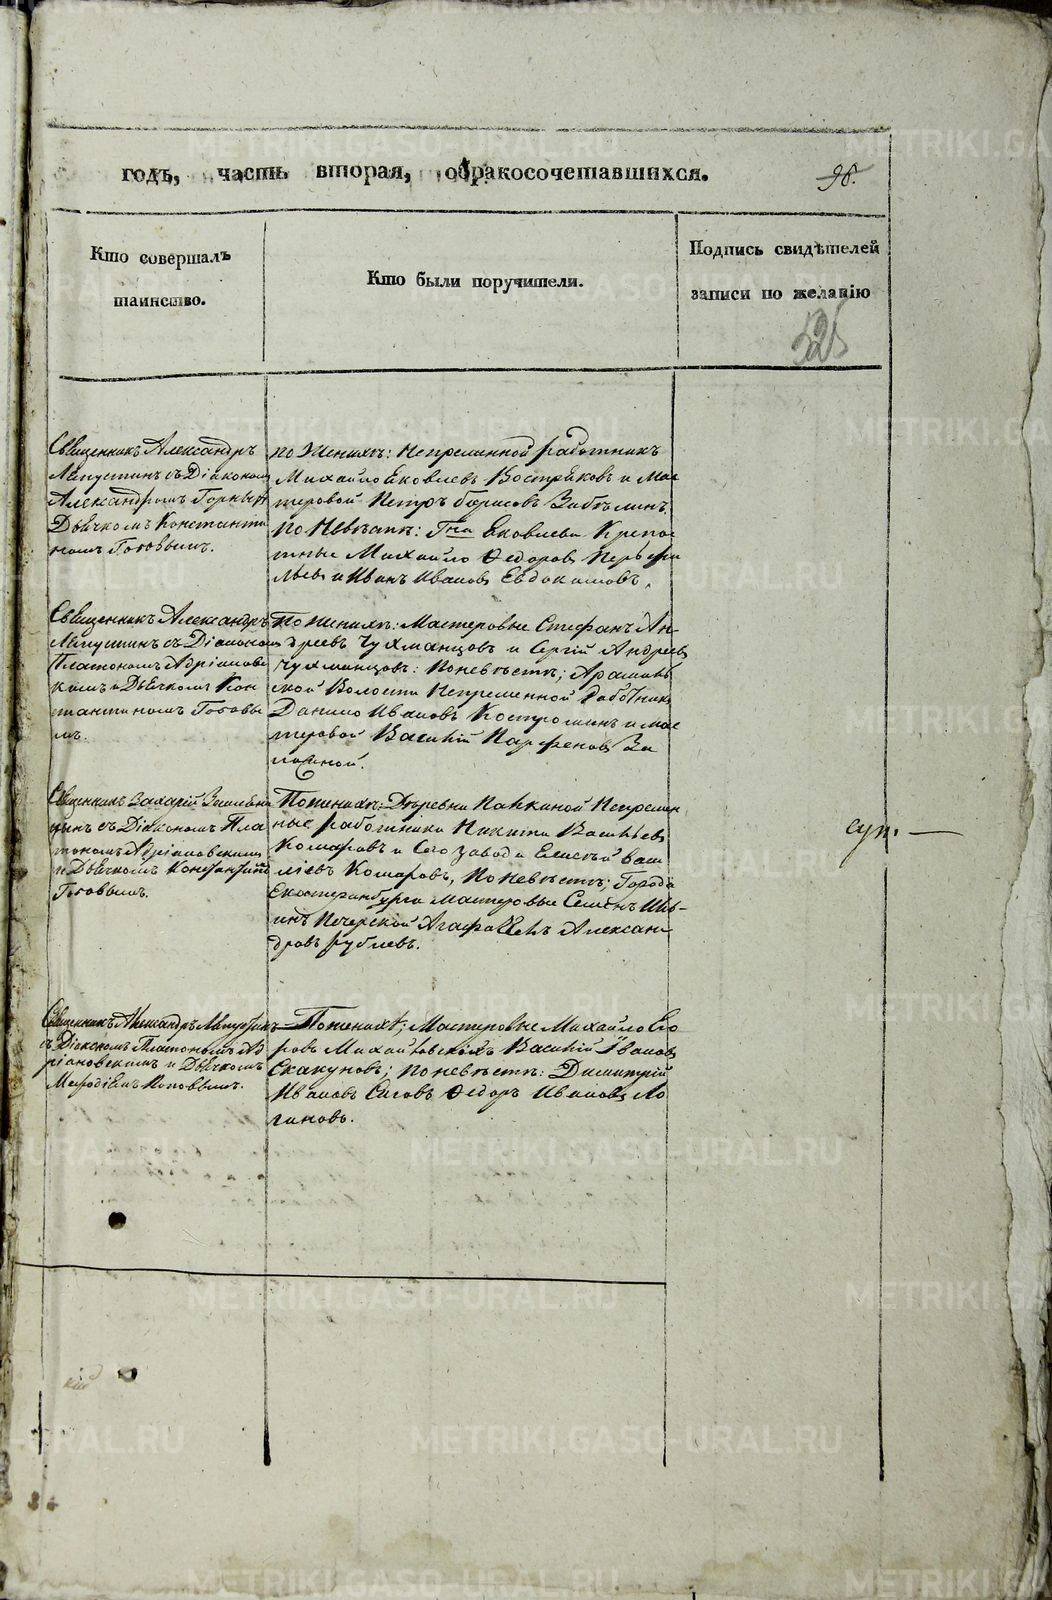 годъ, часть вторая, обракосочетавшихся.
98.
Кто совершалъ
таинство.
Кто были поручители.
Подпись свидѣтелей
записи по желанію
525
Священникъ Александръ
Лапустинъ съ Діакономъ
Александромъ Горныхъ
Дьячкомъ Константи
номъ Поповымъ.
по Женихѣ: Непременной работникъ
Михайло Яковлевъ Востряковъ и мас
теровой Петръ Борисовъ Забѣлинъ
по Невѣстѣ: Гна Яковлева Крепос
тные Михайло Федоровъ
и Иванъ Ивановъ Евдокимовъ,
Священникъ Александръ
Лапустинъ съ Діакономъ
Платономъ Адріановс
кимъ и Дьячкомъ Конс
тантиномъ Поповы
мъ.
По Женихѣ: Мастеровые Стефанъ Ан-
дреевъ Чухманцовъ и Сергій Андреевъ
Чухманцовъ: По невѣстѣ; Арамиль
ской Волости Непременной работникъ
Данило Ивановъ Костроминъ и мас
теровой Василій Парфеновъ За
Священникъ Захарій
съ Діакономъ Пла
тономъ Адріановскимъ
и Дьячкомъ Константиномъ
Поповымъ.
По женихѣ: Деревни Палкиной Непремен
ные работники Никита Васильевъ
Комаровъ и Сего завода Елисѣй Васи
лievъ Комаровъ, По невѣстѣ; Города
Екатеринбурга мастеровые Семенъ Иль-
инъ Печерской Агафангелъ Александ
дровъ Рублевъ.
суп. —
Священникъ Александръ Лапустинъ
съ Діакономъ Платономъ Ад
ріановскимъ и Дьячкомъ
Мефодіемъ Поповымъ.
По женихѣ; Мастеровые Михайло Его
ровъ Михайловскихъ Василій Ивановъ
Скакуновъ; По невѣстѣ: Димитрій
Ивановъ Сысовъ Федоръ Ивановъ Ло
гиновъ.
METRIKI.GASO-URAL.RU